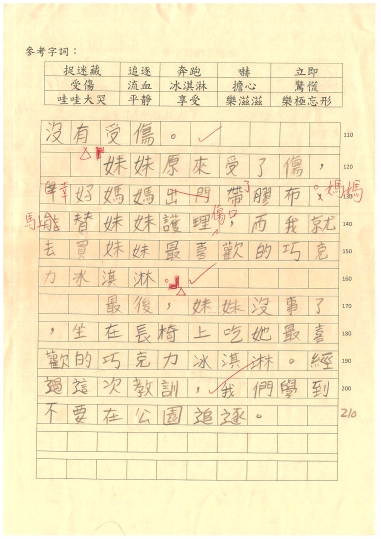 參考字詞：
捉迷藏 追逐 奔跑 嚇 立即
受傷 流血 冰淇淋 擔心 驚慌
哇哇大哭 平靜 享受 樂滋滋 樂極忘形
沒有受傷。 110
妹妹原來受了傷， 120
幸好媽媽出門帶了膠布。媽媽 130
馬上能替妹妹護理傷口，而我就 140
去買妹妹最喜歡的巧克 150
力冰淇淋。 160
最後，妹妹沒事了 170
，坐在長椅上吃她最喜 180
歡的巧克力冰淇淋。經 190
過這次教訓，我們學到 200
不要在公園追逐。 210